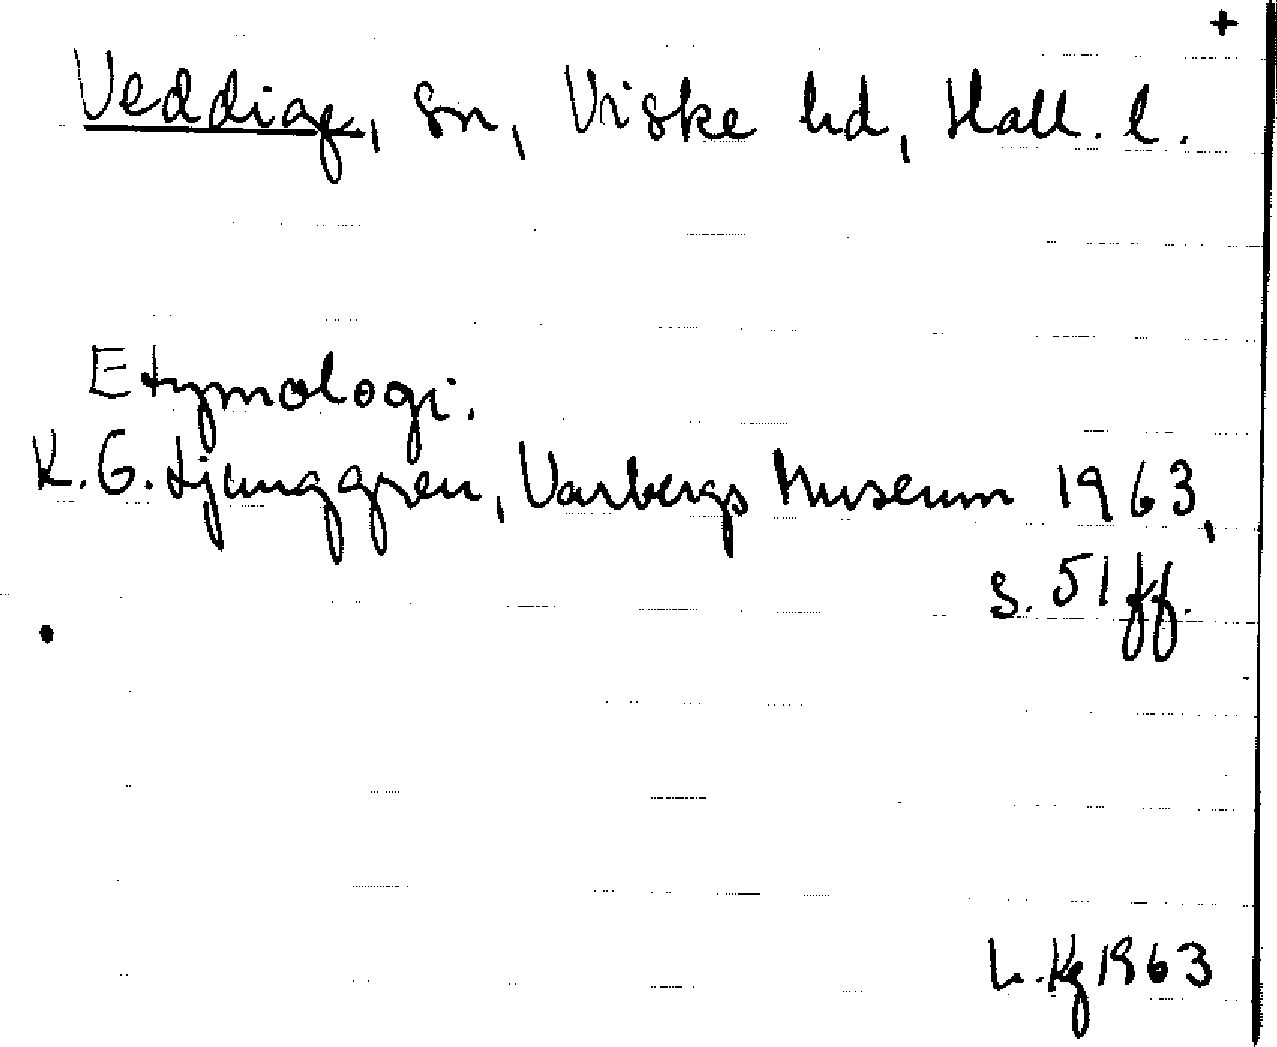 +
Veddige, sn, Viske hd, Hall. l.
Etymologi.
K. G. Ljunggren, Varbergs Museum 1963,
s. 51 ff.
L. Kg 1963